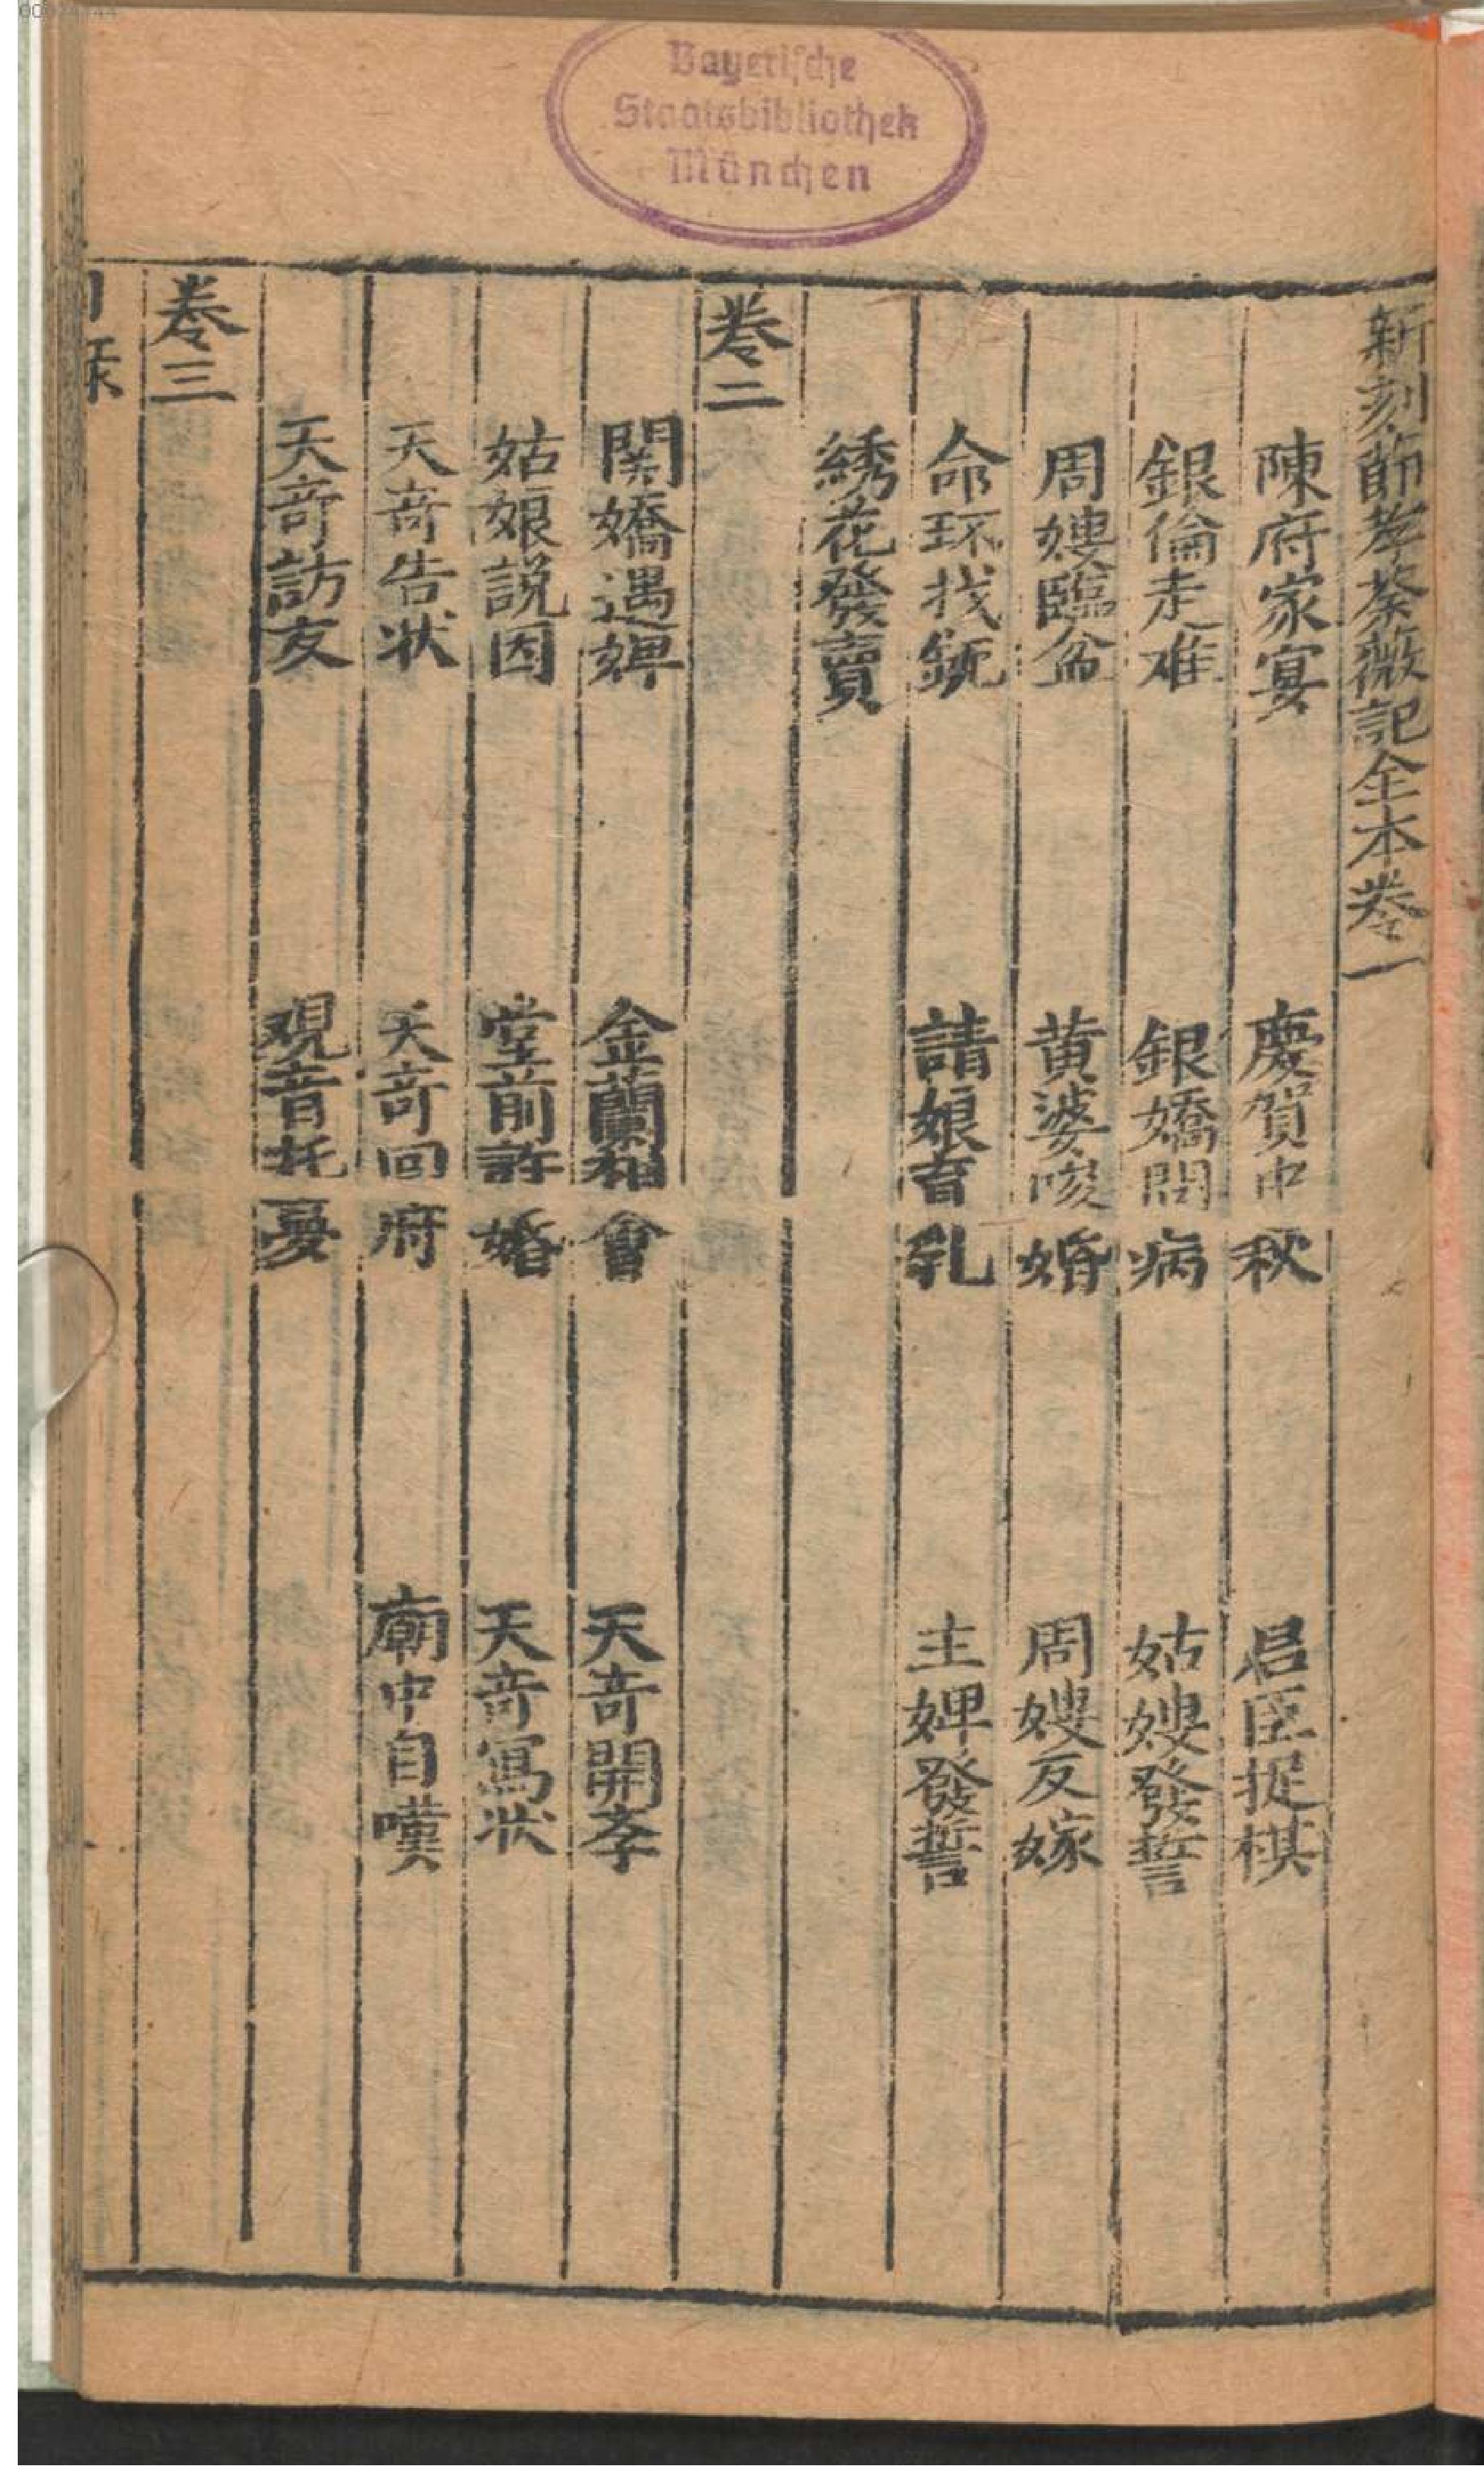 Bayerische
Staatsbibliothek
München
新刻節孝荼薇記全本卷一
陳府家宴 慶賀中秋 君臣捉棋
銀倫走难 銀嬌問病 姑嫂發誓
周嫂臨盆 黄婆唆婚 周嫂反嫁
命环找銃 請娘育乳 主婢發誓
綉花發賣
卷二
関嬌遇婢 金蘭相會 天竒開孝
姑娘説因 堂前許婚 天竒寫状
天竒告状 天竒回府 廟中自嘆
天竒訪友 观音托夢
卷三